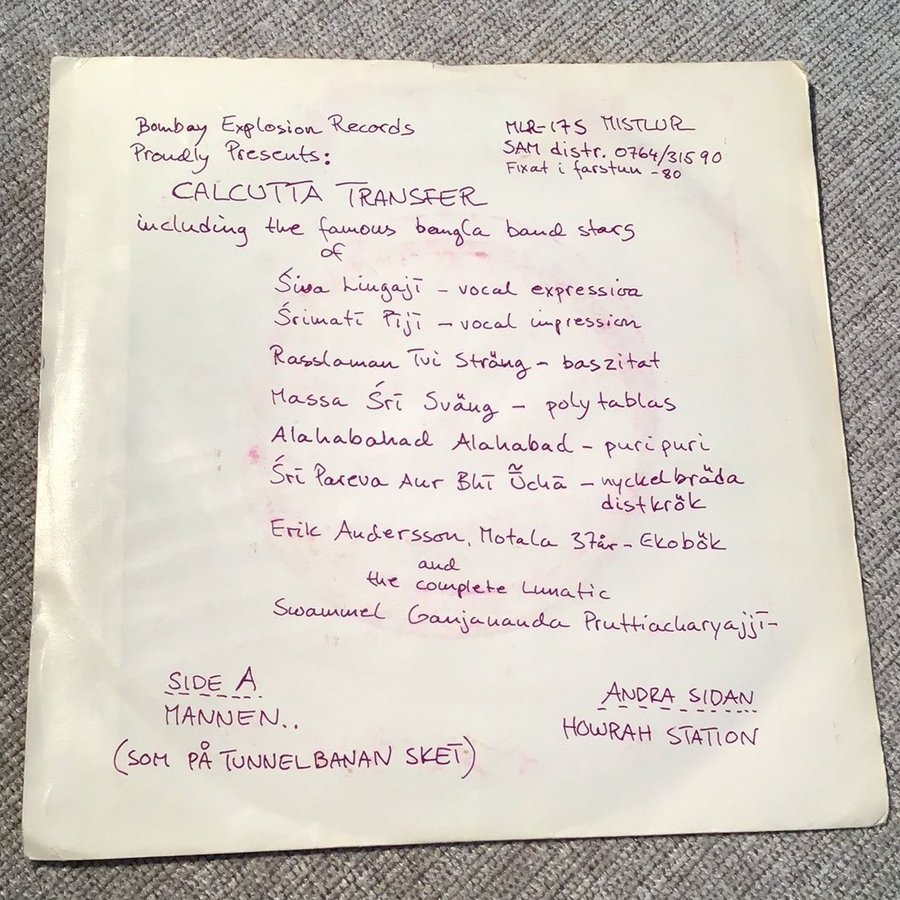 Bombay Explosion Records
Proudly Presents:
MLR-17S MISTLUR
SAM distr. 0764/31590
Fixat i farstun -80
CALCUTTA TRANSFER
including the famous bangla band stars
of
Śiwa Lingajī - vocal expression
Śrimatī Pījī - vocal impression
Rasslaman Tvi Sträng - baszitat
Massa Śrī Sväng - poly tablas
Alahabahad Alahabad - puri puri
Śrī Pareva Aur Bhī Ũchā - nyckelbräda
distkrök
Erik Andersson, Motala 37år - Ekobök
and
the complete Lunatic
Swammel Ganjananda Pruttiacharyajjī-
SIDE A
MANNEN..
(SOM PÅ TUNNELBANAN SKET)
ANDRA SIDAN
HOWRAH STATION